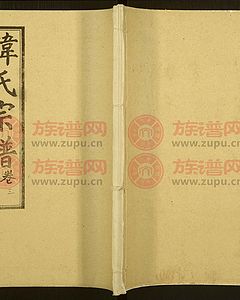 韋氏宗譜卷三
族谱网
www.zupu.cn
族谱网
www.zupu.cn
族谱网
www.zupu.cn
族谱网
www.zupu.cn